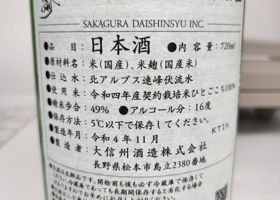 SAKAGURA DAISHINSYU INC.
●品目 日本酒 ●内容量 720ml
●原材料名:米(国産)、米麹(国産米)
●仕込水:北アルプス連峰伏流水
●使用米:令和四年産契約栽培米ひとごこち100%
●精米歩合:49% ●アルコール分:16度
●保存方法:5℃以下で保存してください。
●製造年月:令和4年11月
●製造者:大信州酒造株式会社
長野県松本市島立2380番地